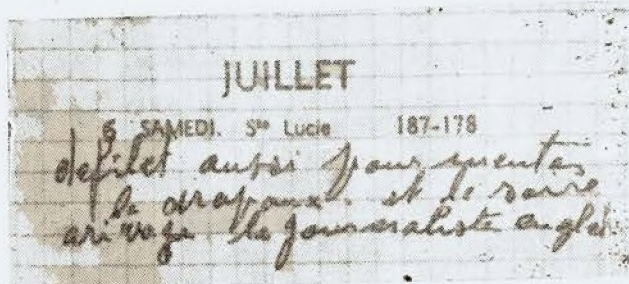 JUILLET
6 SAMEDI. Ste Lucie 187-178
defilet aussi pour
le drapaux. et le
arivage le journaliste angle